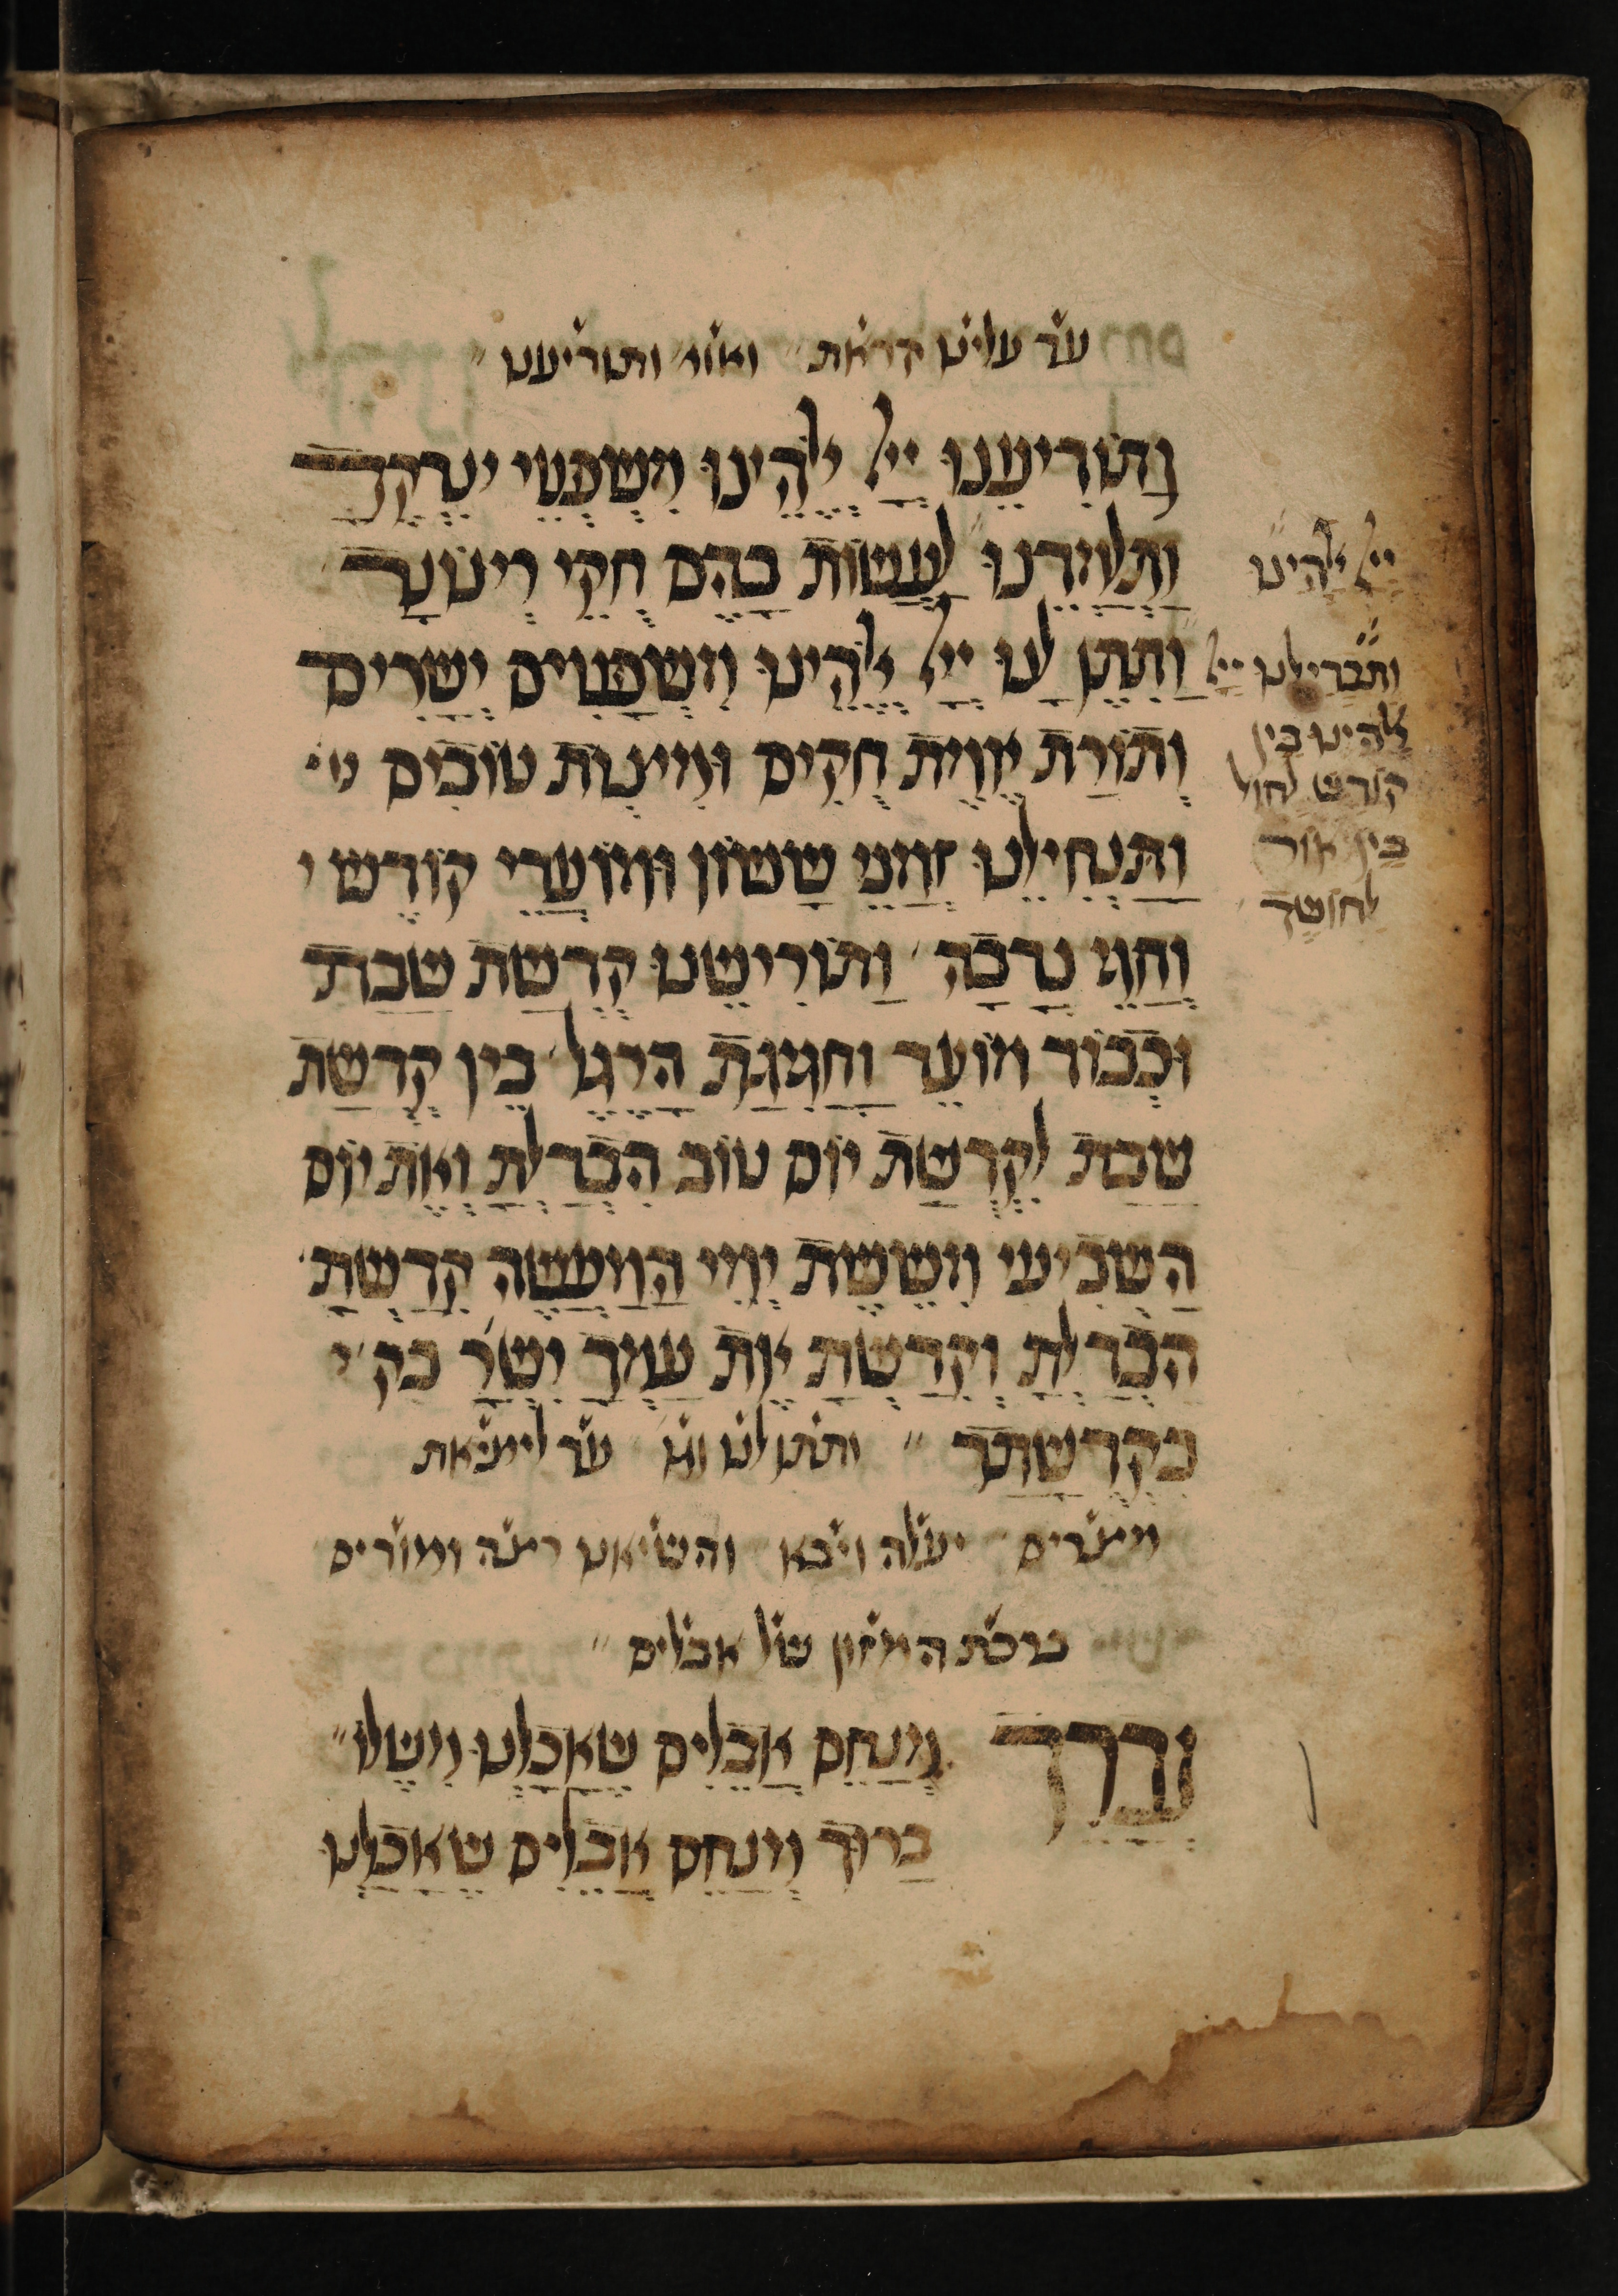 עד עלינו קראת ואו' ותודיענו
וַתּוֹדִיעֵנוּ יְיָ אֱלֹהֵינוּ מִשְׁפְּטֵי צִדְקֶךָ
וַתְּלַמְּדֵנוּ לַעֲשׂוֹת בָּהֶם חֻקֵּי רְצוֹנֶךָ
וַתִּתֶּן לָנוּ יְיָ אֱלֹהֵינוּ מִשְׁפָּטִים יְשָׁרִים
וְתוֹרַת אֱמֶת חֻקִּים וּמִצְוֹת טוֹבִים
וַתַּנְחִילֵנוּ זְמַנֵּי שָׂשׂוֹן וּמוֹעֲדֵי קוֹדֶשׁ
וְחַגֵּי נְדָבָה וַתּוֹרִישֵׁנוּ קְדֻשַּׁת שַׁבָּת
וּכְבוֹד מוֹעֵד וַחֲגִיגַת הָרֶגֶל בֵּין קְדֻשַּׁת
שַׁבָּת לִקְדֻשַּׁת יוֹם טוֹב הִבְדַּלְתָּ וְאֶת יוֹם
הַשְּׁבִיעִי מִשֵּׁשֶׁת יְמֵי הַמַּעֲשֶׂה קִדַּשְׁתָּ
הִבְדַּלְתָּ וְקִדַּשְׁתָּ אֶת עַמְּךָ יִשְׂרָ' בק'
בִּקְדֻשָּׁתֶךָ ותתן לנו וגו' עד ליציאת
מצרים יעלה ויבא והשיאנו רצה ומודים
ברכת המזון של אבלים
נְבָרֵךְ מְנַחֵם אֲבֵלִים שֶׁאָכַלְנוּ מִשֶּׁלּוֹ
בָּרוּךְ מְנַחֵם אֲבֵלִים שֶׁאָכַלְנוּ
יְיָ אלהינו
ותבדילנו יְיָ
אלהינו בין
קודש לחול
בין אור
לחושך